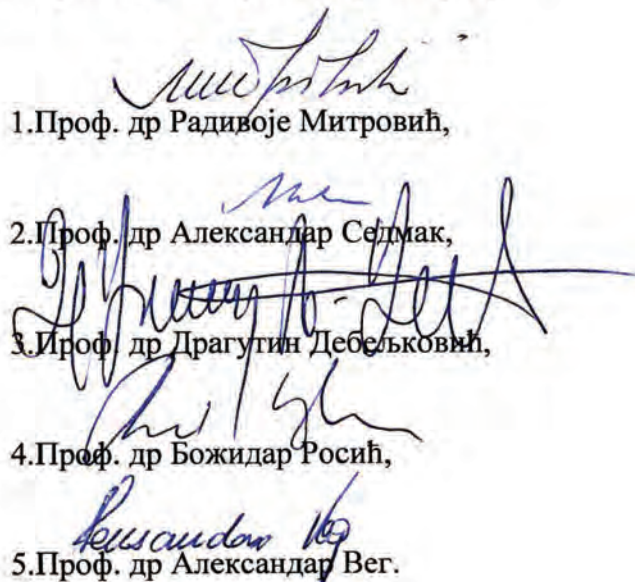 1.Проф. др Радивоје Митровић,
2.Проф. др Александар Седмак,
3.Проф. др Драгутин Дебељковић,
4.Проф. др Божидар Росић,
5.Проф. др Александар Вег.